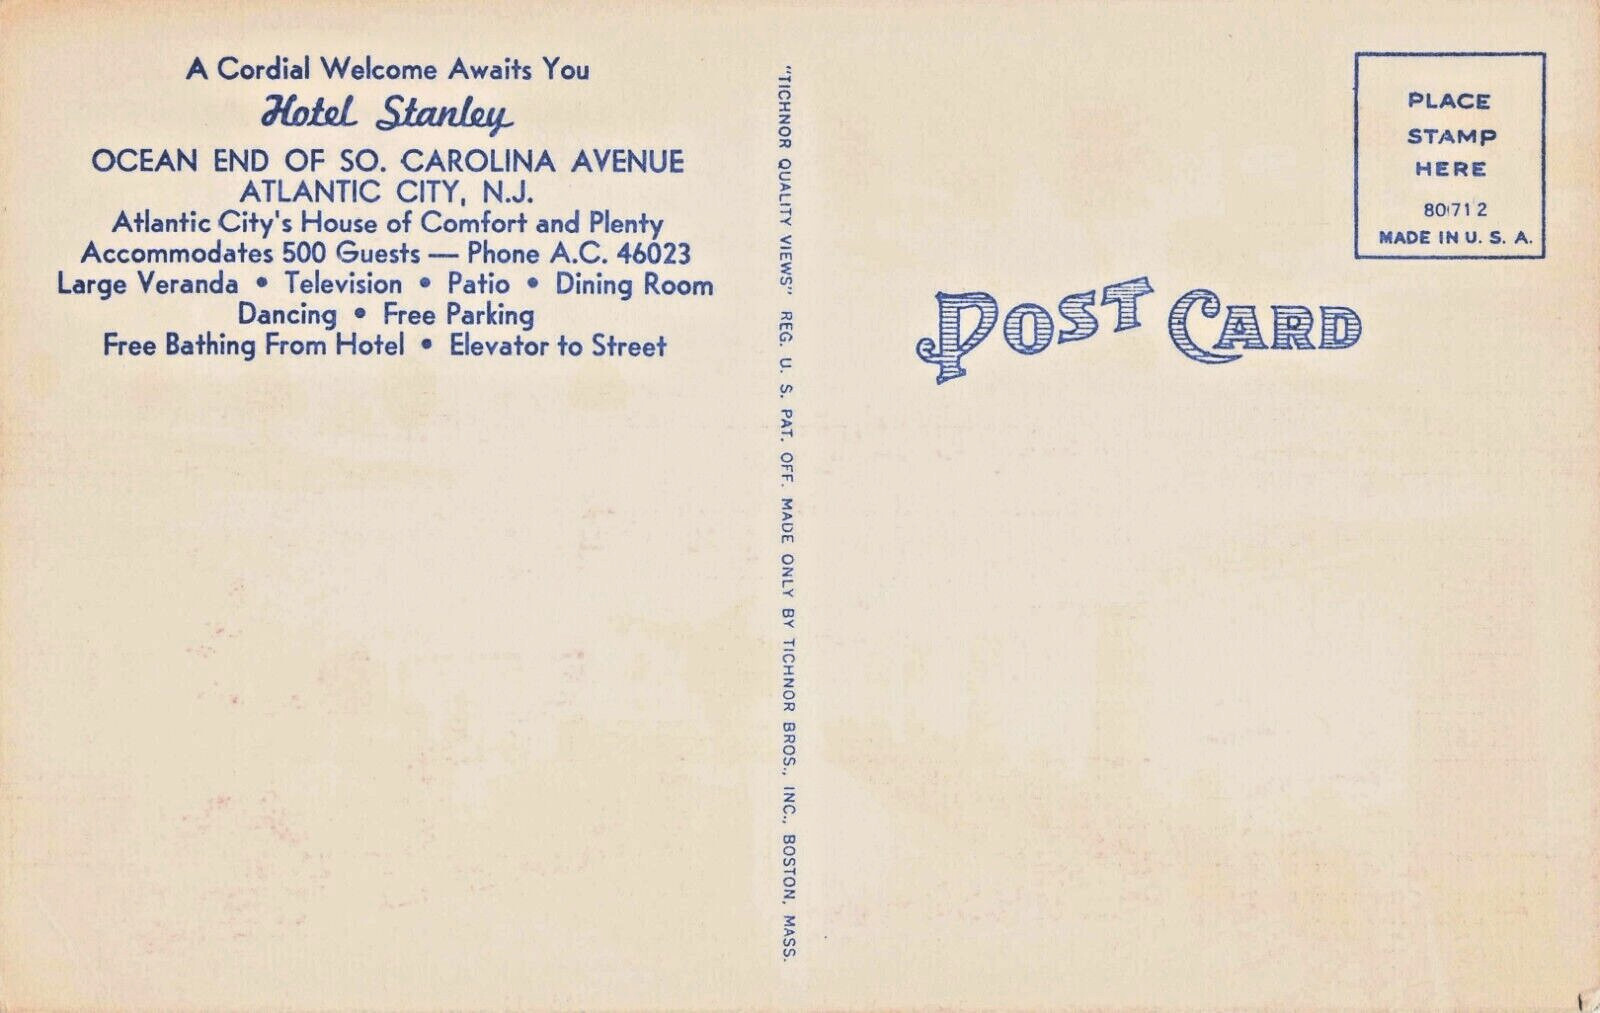 A Cordial Welcome Awaits You
Hotel Stanley
OCEAN END OF SO. CAROLINA AVENUE
ATLANTIC CITY, N.J.
Atlantic City's House of Comfort and Plenty
Accommodates 500 Guests — Phone A.C. 46023
Large Veranda • Television • Patio • Dining Room
Dancing • Free Parking
Free Bathing From Hotel • Elevator to Street
"TICHNOR QUALITY VIEWS" REG. U. S. PAT. OFF. MADE ONLY BY TICHNOR BROS., INC., BOSTON, MASS.
PLACE
STAMP
HERE
80712
MADE IN U. S. A.
POST CARD